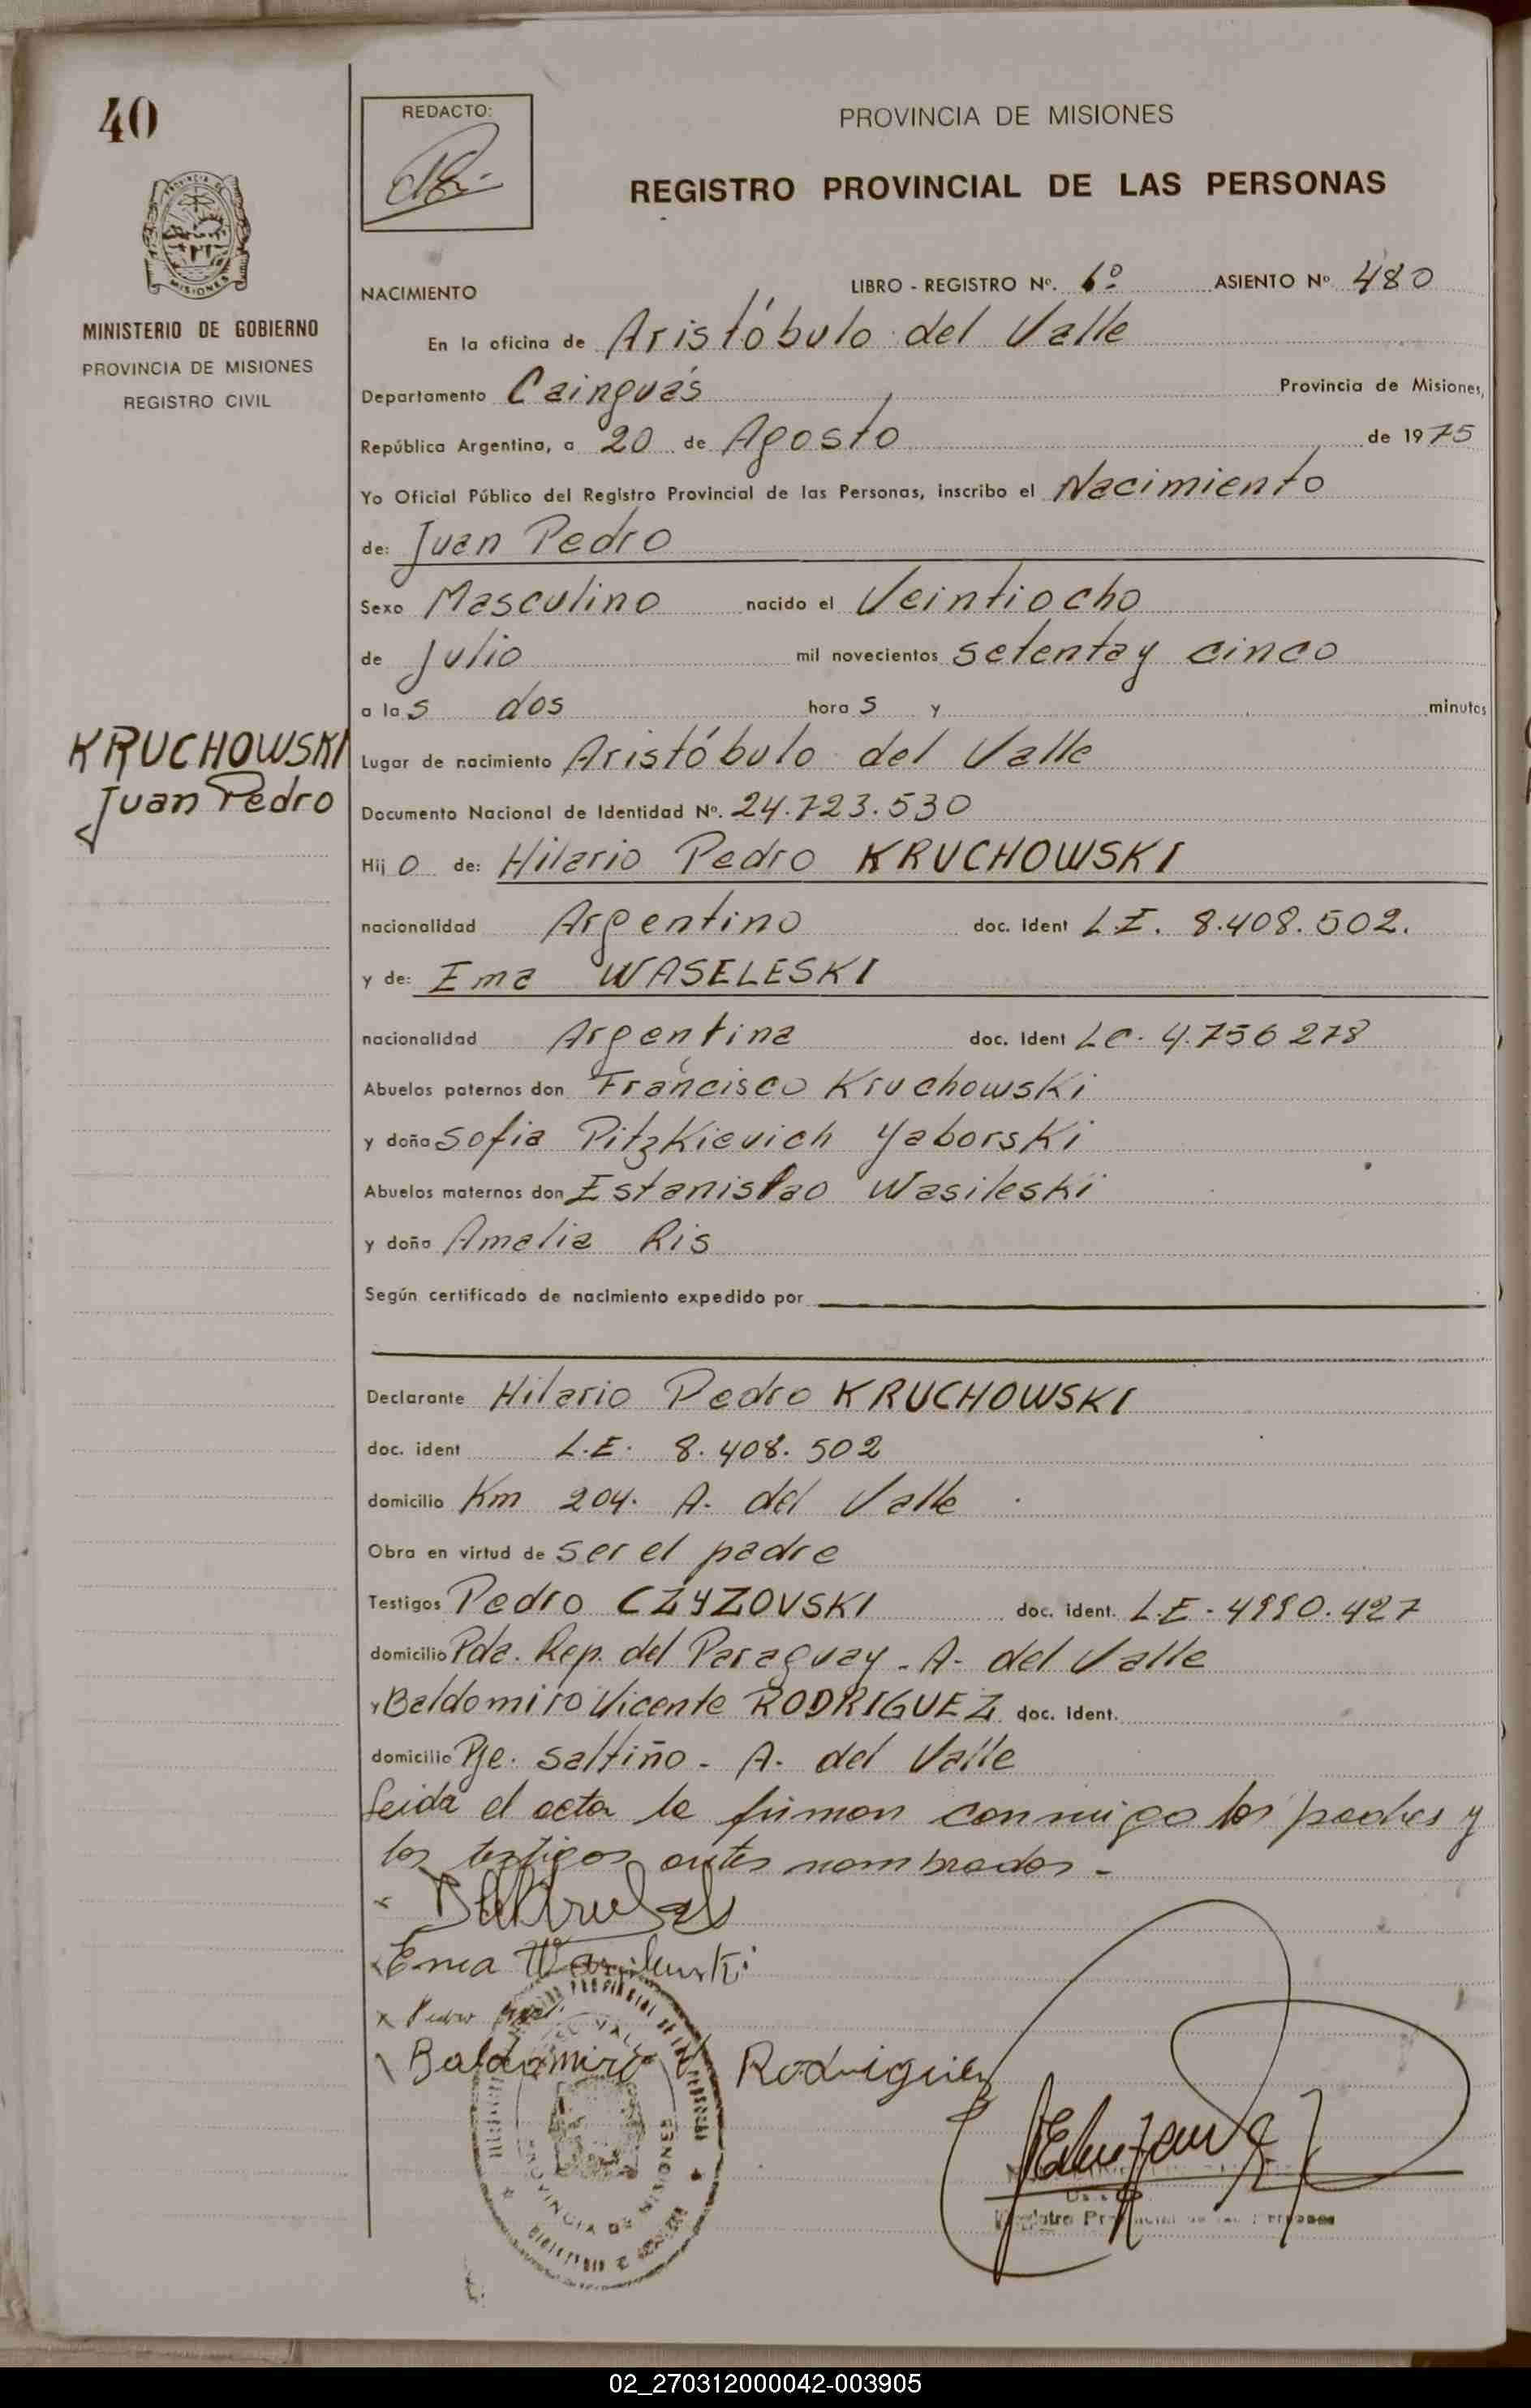 40
REDACTO:
PROVINCIA DE MISIONES
REGISTRO PROVINCIAL DE LAS PERSONAS
MISIONES
MINISTERIO DE GOBIERNO
PROVINCIA DE MISIONES
REGISTRO CIVIL
NACIMIENTO
LIBRO - REGISTRO Nº. 6º ASIENTO Nº 480
En la oficina de Aristóbulo del Valle
Departamento Cainguás Provincia de Misiones,
República Argentina, a 20 de Agosto de 1975
Yo Oficial Público del Registro Provincial de las Personas, inscribo el Nacimiento
de: Juan Pedro
Sexo Masculino nacido el Veintiocho
de Julio mil novecientos setenta y cinco
a las dos horas y minutos
KRUCHOWSKI
Juan Pedro
Lugar de nacimiento Aristóbulo del Valle
Documento Nacional de Identidad Nº. 24.723.530
Hijo de: Hilario Pedro KRUCHOWSKI
nacionalidad Argentino doc. Ident L.E. 8.408.502.
y de: Ema WASELESKI
nacionalidad Argentina doc. Ident LC. 4.756 278
Abuelos paternos don Francisco Kruchowski
y doña Sofia Pitzkievich Yaborski
Abuelos maternos don Estanislao Wasileski
y doña Amalia Ris
Según certificado de nacimiento expedido por
Declarante Hilario Pedro KRUCHOWSKI
doc. ident L.E. 8.408.502
domicilio Km 204. A. del Valle
Obra en virtud de ser el padre
Testigos Pedro CZYZOVSKI doc. ident. L.E.
domicilio Pda. Rep. del Paraguay - A- del Valle
y Baldomiro Vicente RODRIGUEZ doc. Ident.
domicilio Pje. Saltiño - A. del Valle
Leida el acta la firman conmigo los padres y
los testigos antes nombrados -
Ema
Baldomiro Rodriguez
PROVINCIA DE MISIONES
02_270312000042-003905